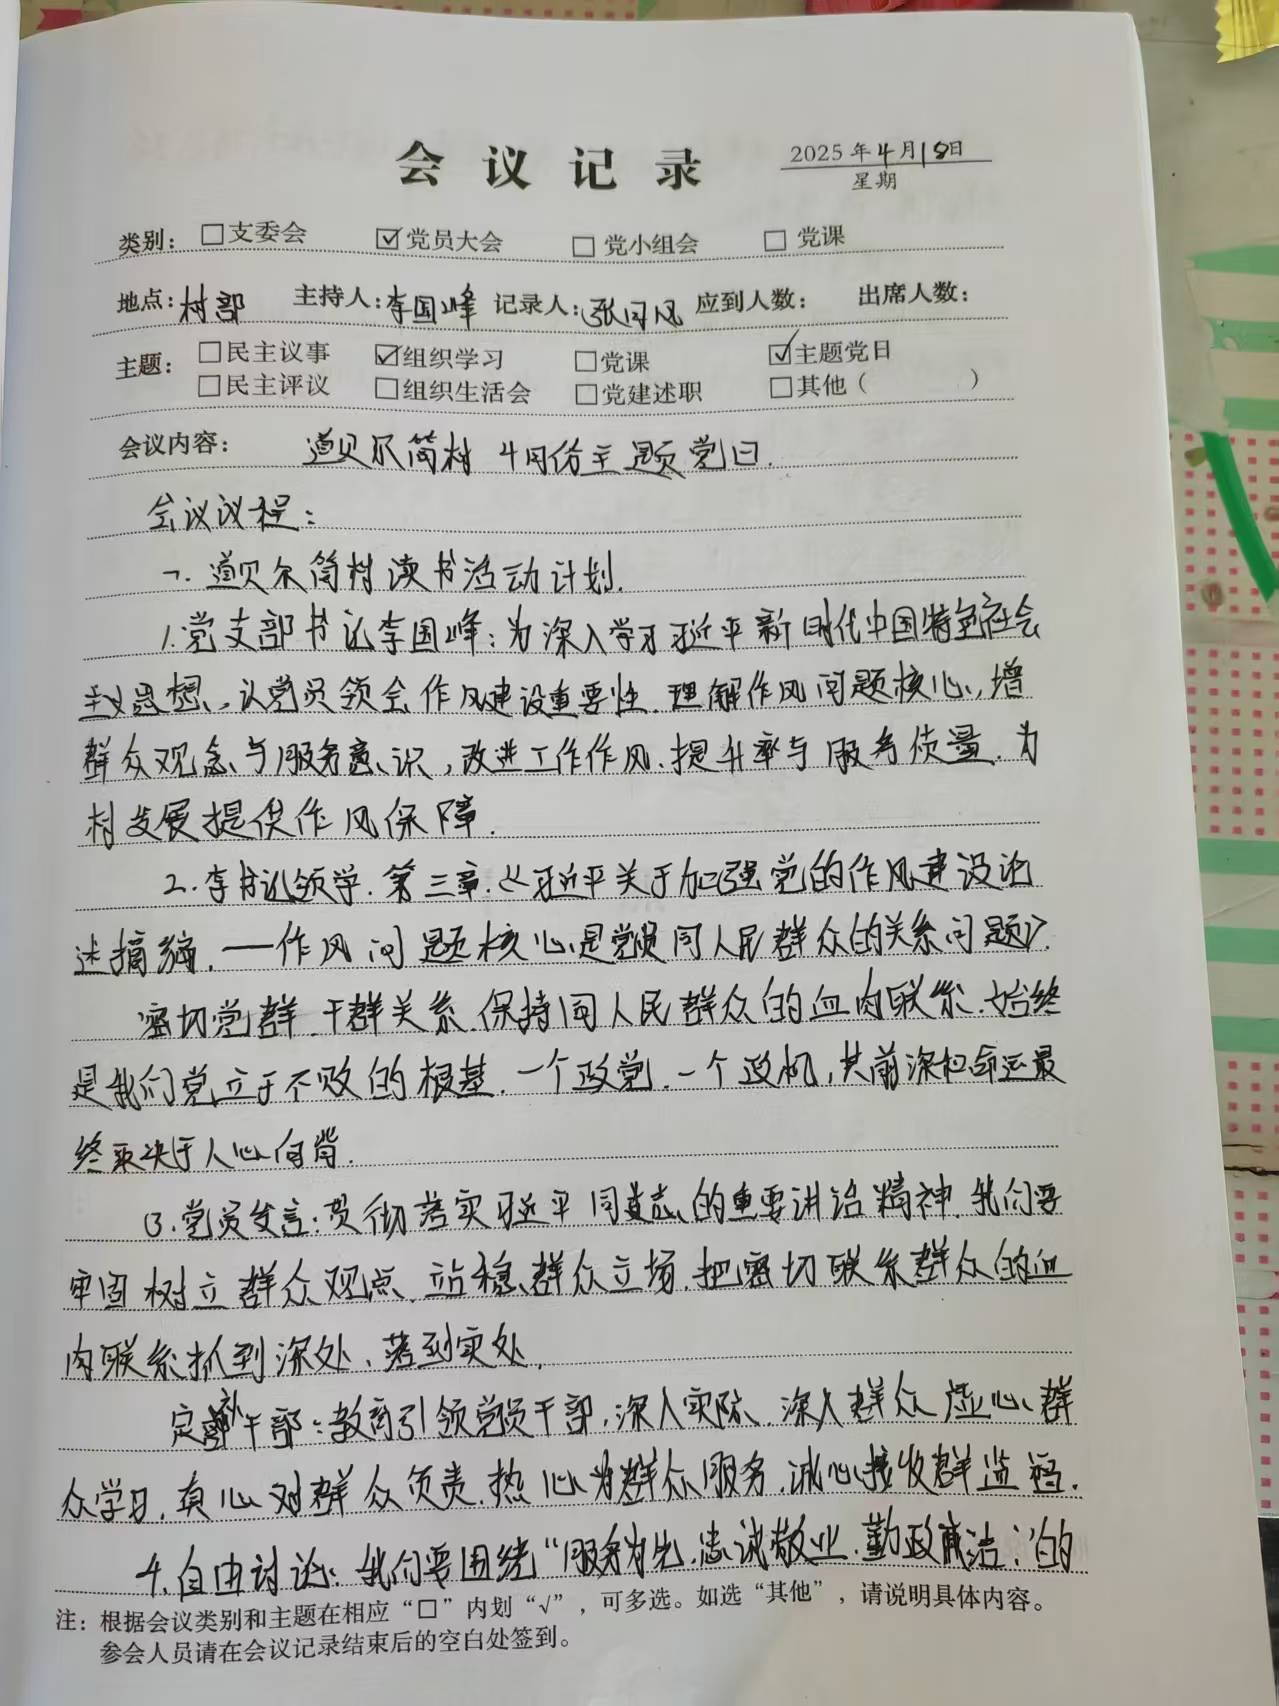 会议记录
2025年4月18日
星期
类别： □支委会 ☑党员大会 □党小组会 □党课
地点：村部 主持人：李国峰 记录人：张 应到人数： 出席人数：
主题： □民主议事 ☑组织学习 □党课 ☑主题党日
□民主评议 □组织生活会 □党建述职 □其他（ ）
会议内容： 道贝尔筒村 4月份主题党日.
会议议程：
一. 道贝尔筒村读书活动计划.
1.党支部书记李国峰：为深入学习习近平新时代中国特色社会
主义思想，认党员领会作风建设重要性.理解作风问题核心，增
群众观念与服务意识，改进工作作风.提升率与服务质量.为
村发展提供作风保障.
2.李书记领学.第三章.《习近平关于加强党的作风建设论
述摘编.——作风问题核心是党员同人民群众的关系问题》.
密切党群.干群关系.保持同人民群众的血肉联系.始终
是我们党立于不败的根基.一个政党.一个政机，其前深和命运最
终取决于人心向背.
3.党员发言：贯彻落实习近平同志的重要讲话精神.我们要
牢固树立群众观点.站稳群众立场.把密切联系群众的血
肉联系抓到深处、落到实处.
干部：教育引领党员干部，深入实际、深入群众虚心群
众学习，真心对群众负责.热心为群众服务.诚心接收群监督.
4.自由讨论：我们要围绕“服务为先.忠诚敬业.勤政廉洁”的
注：根据会议类别和主题在相应“□”内划“√”，可多选。如选“其他”，请说明具体内容。
参会人员请在会议记录结束后的空白处签到。